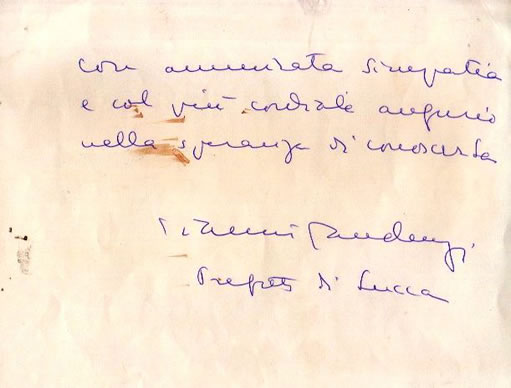 con ammirata simpatia
e col più cordiale augurio
nella speranza di conoscerLa
Prefetto di Lucca